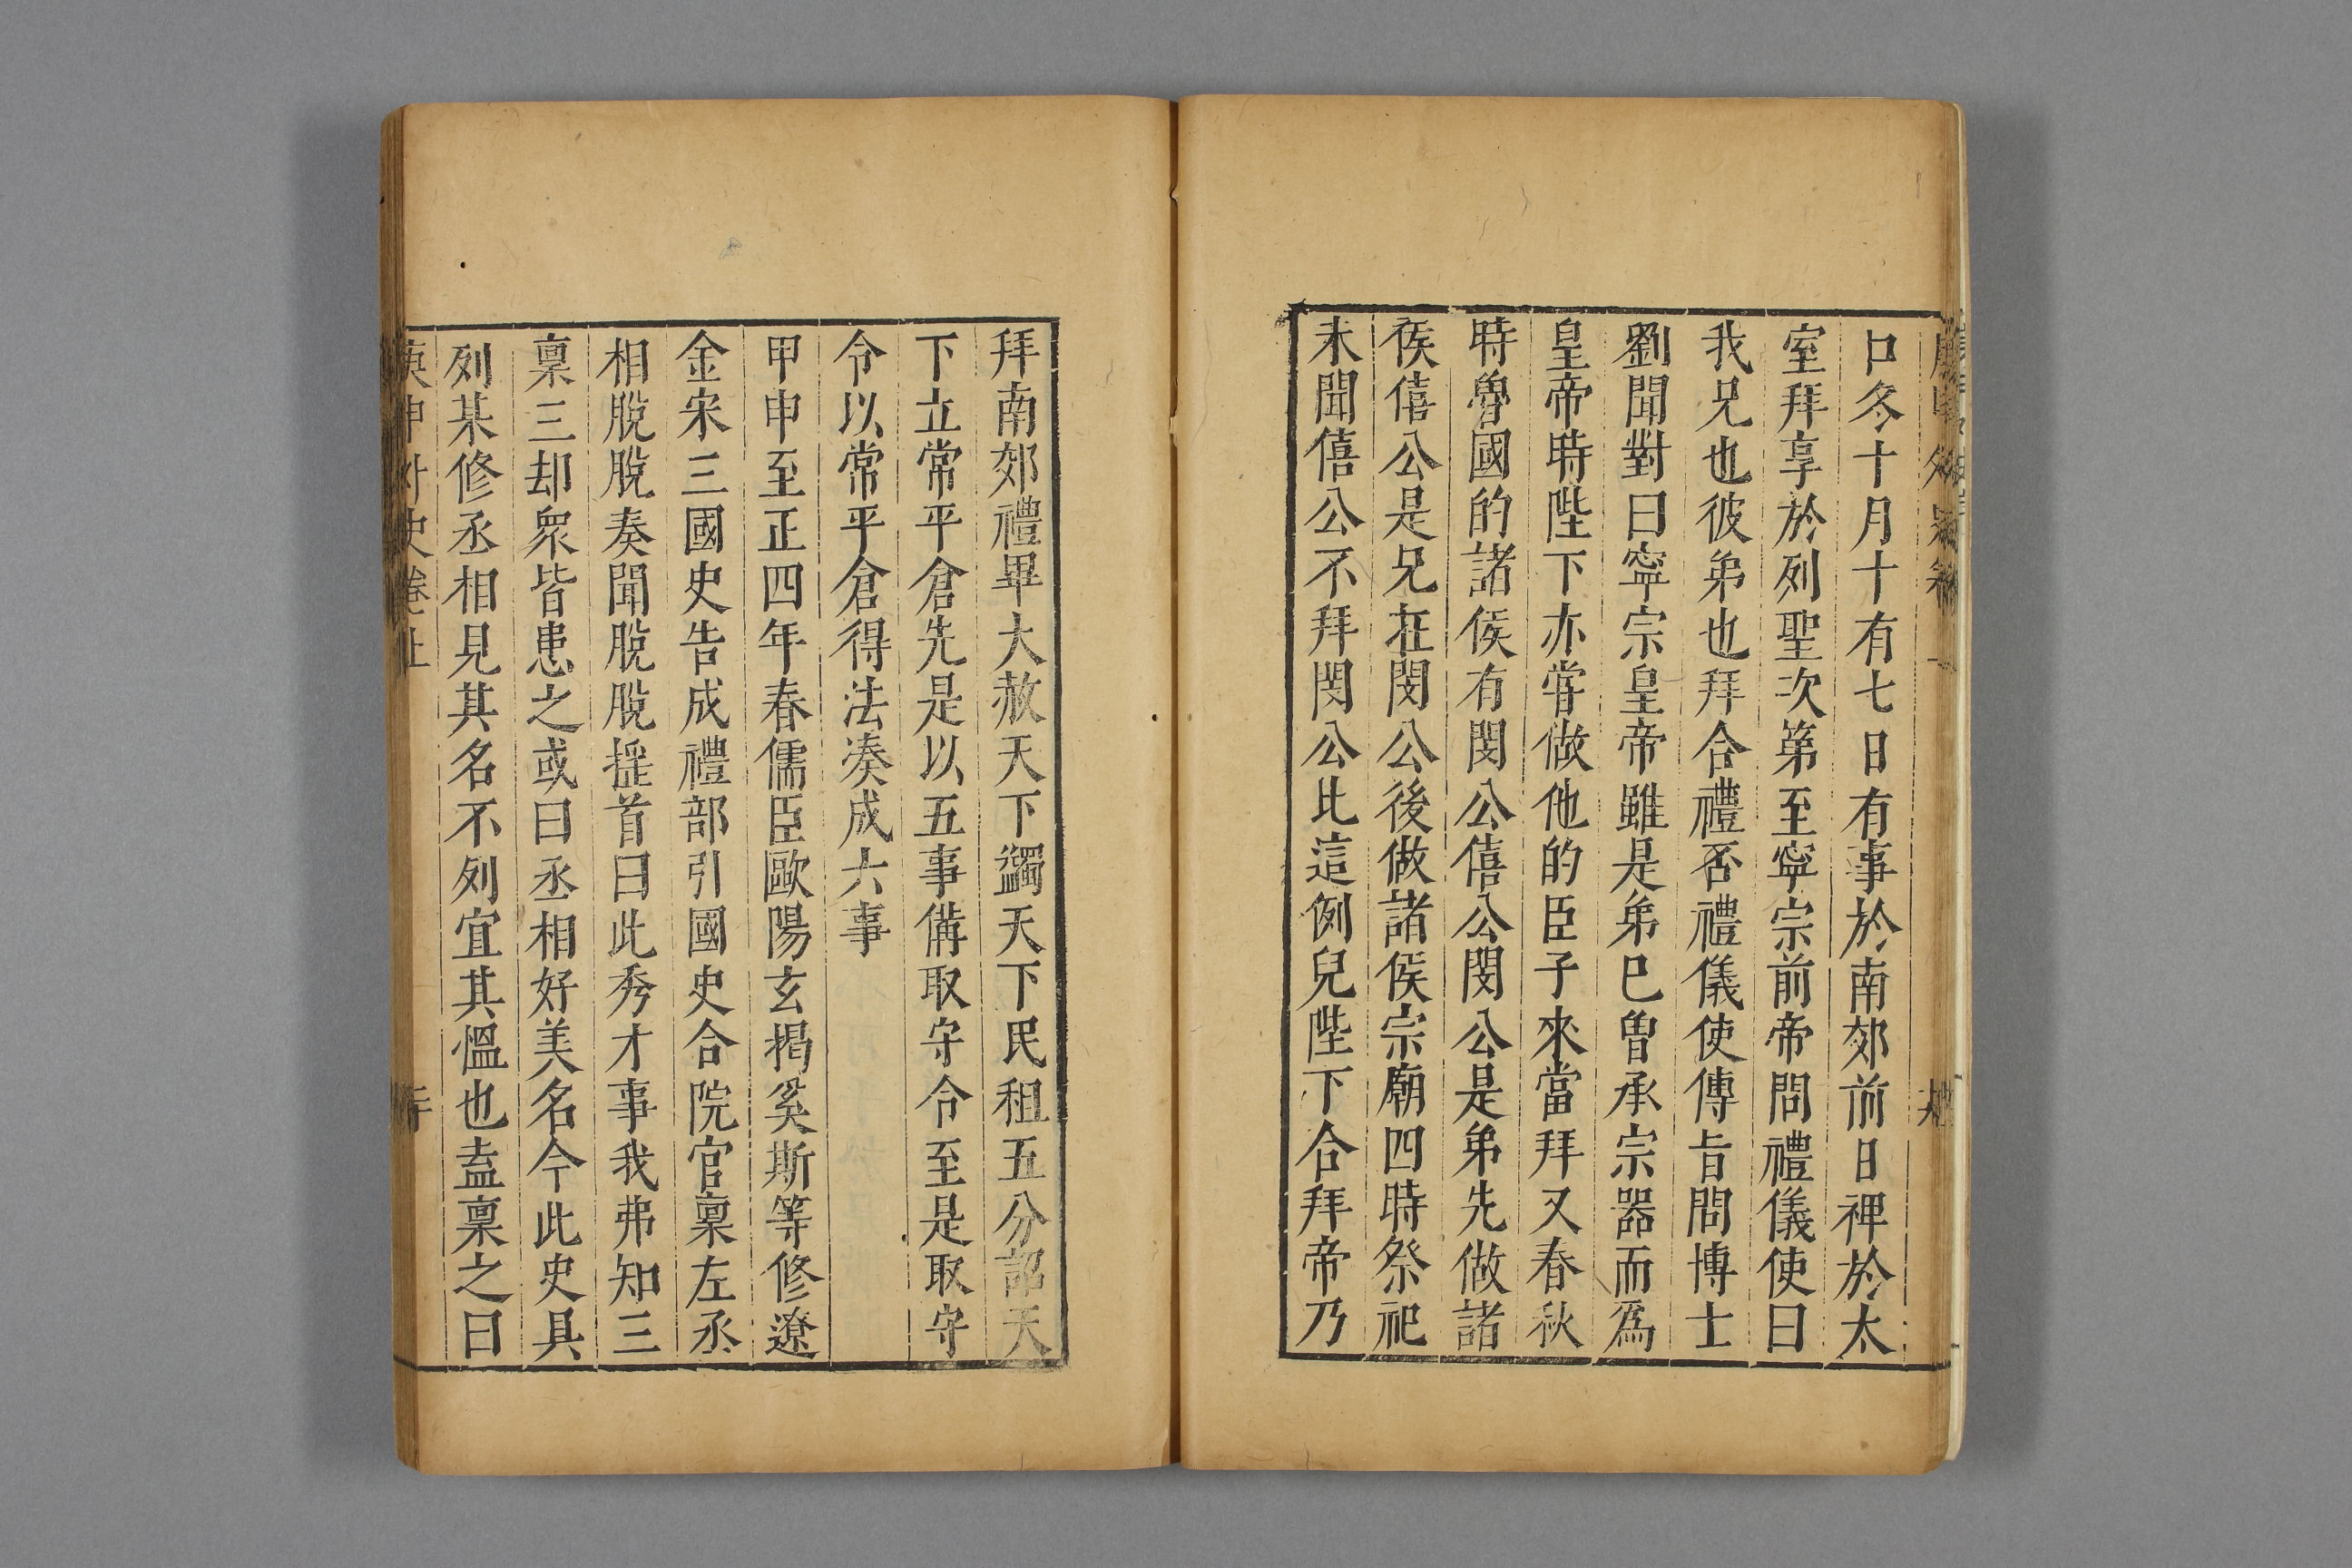 口冬十月十有七日有事於南郊前日裡於太
室拜享於列聖次第至寧宗前帝問禮儀使曰
我兄也彼弟也拜合禮否禮儀使傳旨問博士
劉聞對曰寧宗皇帝雖是弟巳曾承宗器而爲
皇帝時陛下亦嘗做他的臣子來當拜又春秋
時魯國的諸侯有閔公僖公閔公是弟先做諸
侯僖公是兄在閔公後做諸侯宗廟四時祭祀
未聞僖公不拜閔公比這例兒陛下合拜帝乃
拜南郊禮畢大赦天下蠲天下民租五分詔天
下立常平倉先是以五事備取守令至是取守
令以常平倉得法湊成六事
甲申至正四年春儒臣歐陽玄揭奚斯等修遼
金宋三國史告成禮部引國史合院官稟左丞
相脫脫奏聞脫脫搖首曰此秀才事我弗知三
稟三却衆皆患之或曰丞相好美名今此史具
列某修丞相見其名不列宜其慍也盍稟之曰
庚申外史卷上